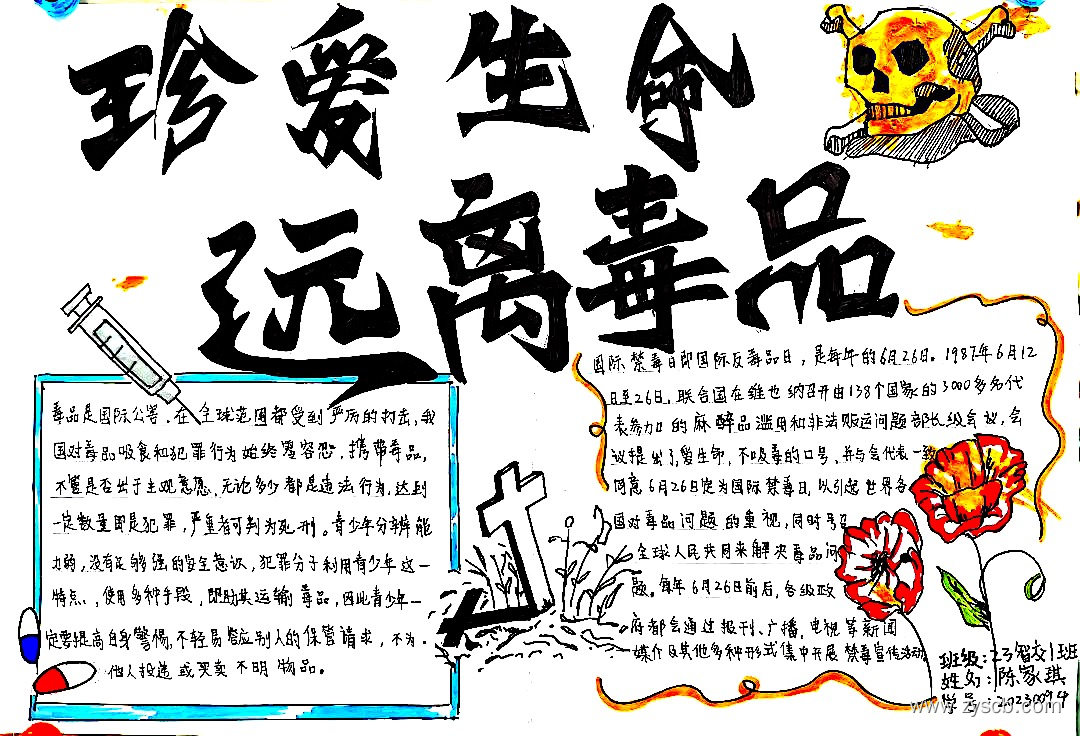 珍爱生命
远离毒品
毒品是国际公害，在全球范围都受到严厉的打击，我
国对毒品吸食和犯罪行为始终零容忍，携带毒品，
不管是否出于主观意愿，无论多少都是违法行为，达到
一定数量即是犯罪，严重者可判为死刑。青少年分辨能
力弱，没有足够强的安全意识，犯罪分子利用青少年这一
特点，使用多种手段，即助其运输毒品，因此青少年一
定要提高自身警惕，不轻易答应别人的保管请求，不为
他人投递或买卖不明物品。
国际禁毒日即国际反毒品日，是每年的6月26日。1987年6月12
日至26日，联合国在维也纳召开由138个国家的3000多名代
表参加的麻醉品滥用和非法贩运问题部长级会议，会
议提出了爱生命，不吸毒的口号，并与会代表一致
同意6月26日定为国际禁毒日，以引起世界各
国对毒品问题的重视，同时号召
全球人民共同来解决毒品问
题。每年6月26日前后，各级政
府都会通过报刊、广播，电视等新闻
媒介及其他多种形式集中开展禁毒宣传活动
班级：23智交1班
姓名：陈家琪
学号：20230094
www.zyscb.com